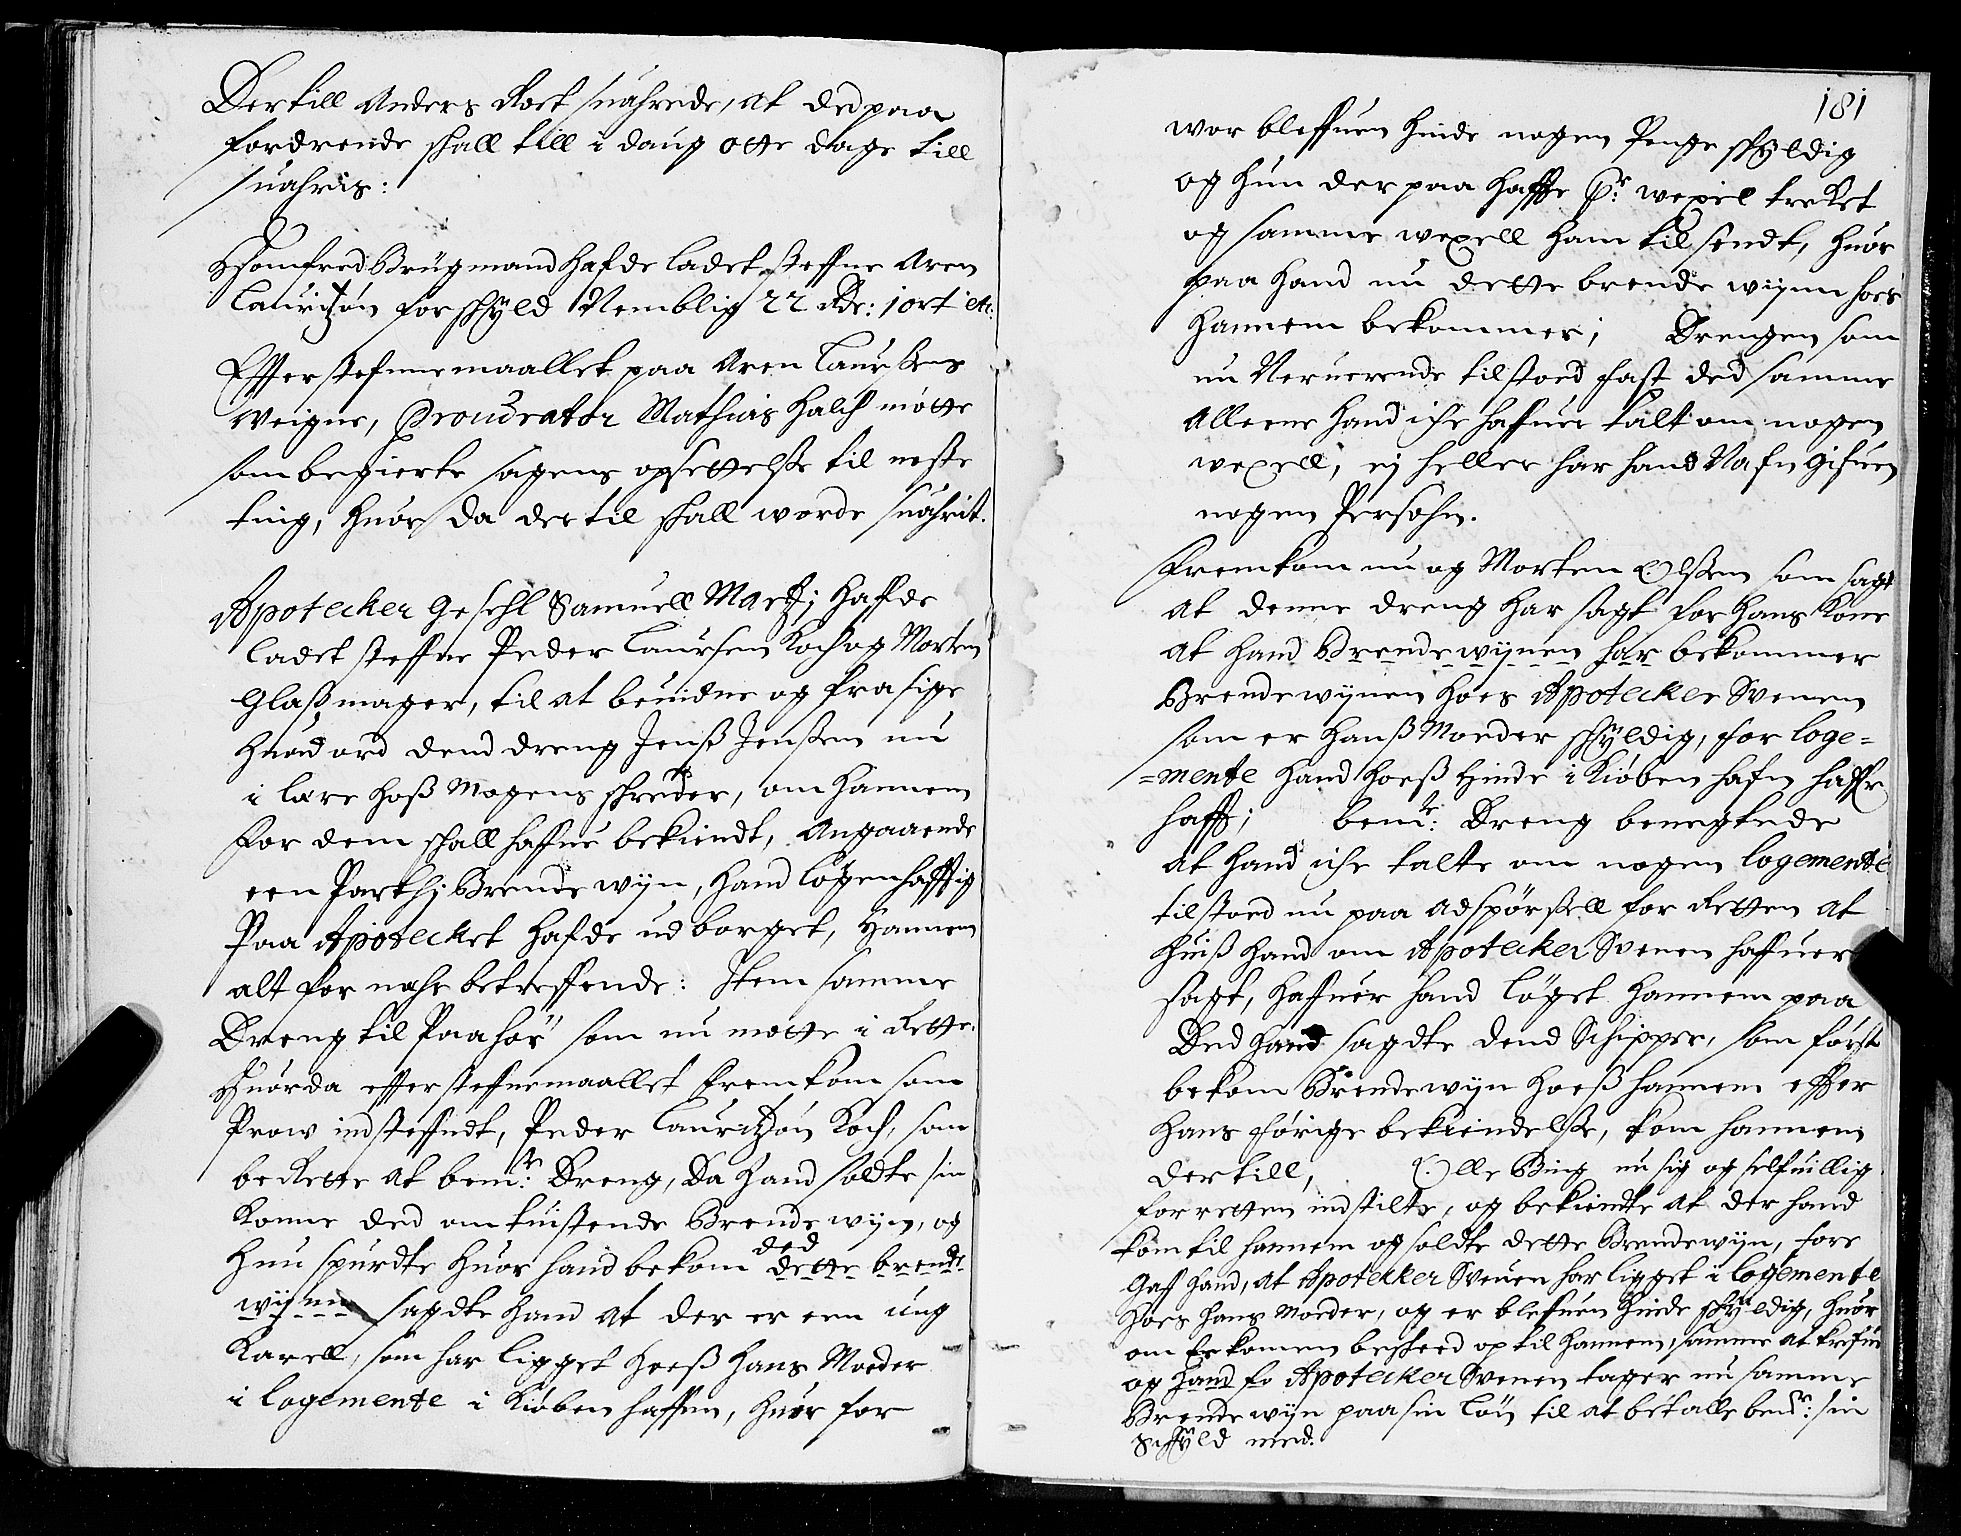 Dertill Anders Kock suahrede, at ded paa
fordrende shall till i daug otte dage till
suahris:
Homfred Brügmand hafde ladet steffne Aren
Lauridtzøn for shyld Nemblig 22 Rdr: 1 ort etc.
Effter stefnnemaallet paa Aren Laurssens
Weigne, Procurator Mathias Halch møtte
som begierte sagens opsettelsse til neste
ting, huor da dertil shall worde suahrit.
Apotecker Gesehl Samuell Martj hafde
ladet steffne Peder Laursen Koch og Morten
Glassmager, til at beuidne og fra sige
huad ord dend dreng Jenss Jenssen nu
i lære hoss Mogens shreder, om hannem
for dem shall haffue bekiendt, Angaaende
een Parthj Brendewijn, hand løgenhafftig
Paa Apotecket hafde udborget, Hannem
alt for nahe betreffende: Item samme
Dreng til Paahør som nu møtte i Rette.
Huorda effter steffnemaallet fremkom som
Prow indsteffndt, Peder Lauridtzøn Koch, som
berette at bemte: Dreng, da hand soldte sin
Konne ded omtuistende Brendewijn, og
hun spurdte huor hand bekom ded dette brende
wijnn sagdte hand at der er een ung
Karell, som har ligget hoess hans Moeder
i logemente i Kiøbenhaffen, huor for
181
wor bleffuen hinde nogen Penge shyldig
og hun der paa haffde Pr: wexel trecket
og samme wexell ham tilsendt, huor
paa hand nu dette brende wijnn hoes
hannem bekommer; Drengen som
nu Neruerende tilstoed fast ded samme
Alleene hand iche haffuer talt om nogen
wexell, ej heller har hand Nafn gifuen
nogen Persohn.
Fremkom nu og Morten Olssen som sagde
at denne dreng har sagt for hans Kone
at hand Brendewijnen har bekommer
Brendewijnen hoes Apotecker Svenen
som er hanss Moeder shyldig, for loge=
=mente hand hoess hinde i Kiøbenhafn haffr
hafft; bemte: Dreng benegtede
at hand iche talte om nogen logemente
tilstoed nu paa adspørssell for Retten at
huiss hand om Apotecker Svenen haffuer
sagt, haffuer hand løget hannem paa
Ded hand sagdte dend Schipper, som først
bekom Brendewijn hoess hannem effter
hans førige bekiendelsse, kom hannem
dertill, Olle Bing nu sig og selfuillig
for retten indstilte, og bekiendte at der hand
kom til hannem og soldte dette Brendewijn, fore
Gaf hand, at Apotecker Svenen har ligget i logemente
hoes hans Moeder, og er blefuen hinde shyldig, huor
om er komen besheed op til hannem, samme at krefue
og hand fo Apotecker Svenen tager nu samme
Brendewijn paa sin løn til at betalle bemte: sin
Schyld med.